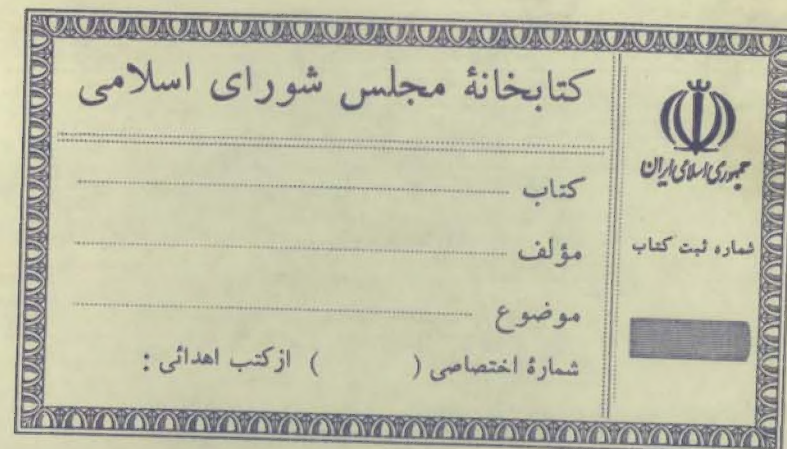 کتابخانهٔ مجلس شورای اسلامی
کتاب
مؤلف
موضوع
شمارهٔ اختصاصی (          ) از کتب اهدائی :
جمهوری اسلامی ایران
شماره ثبت کتاب